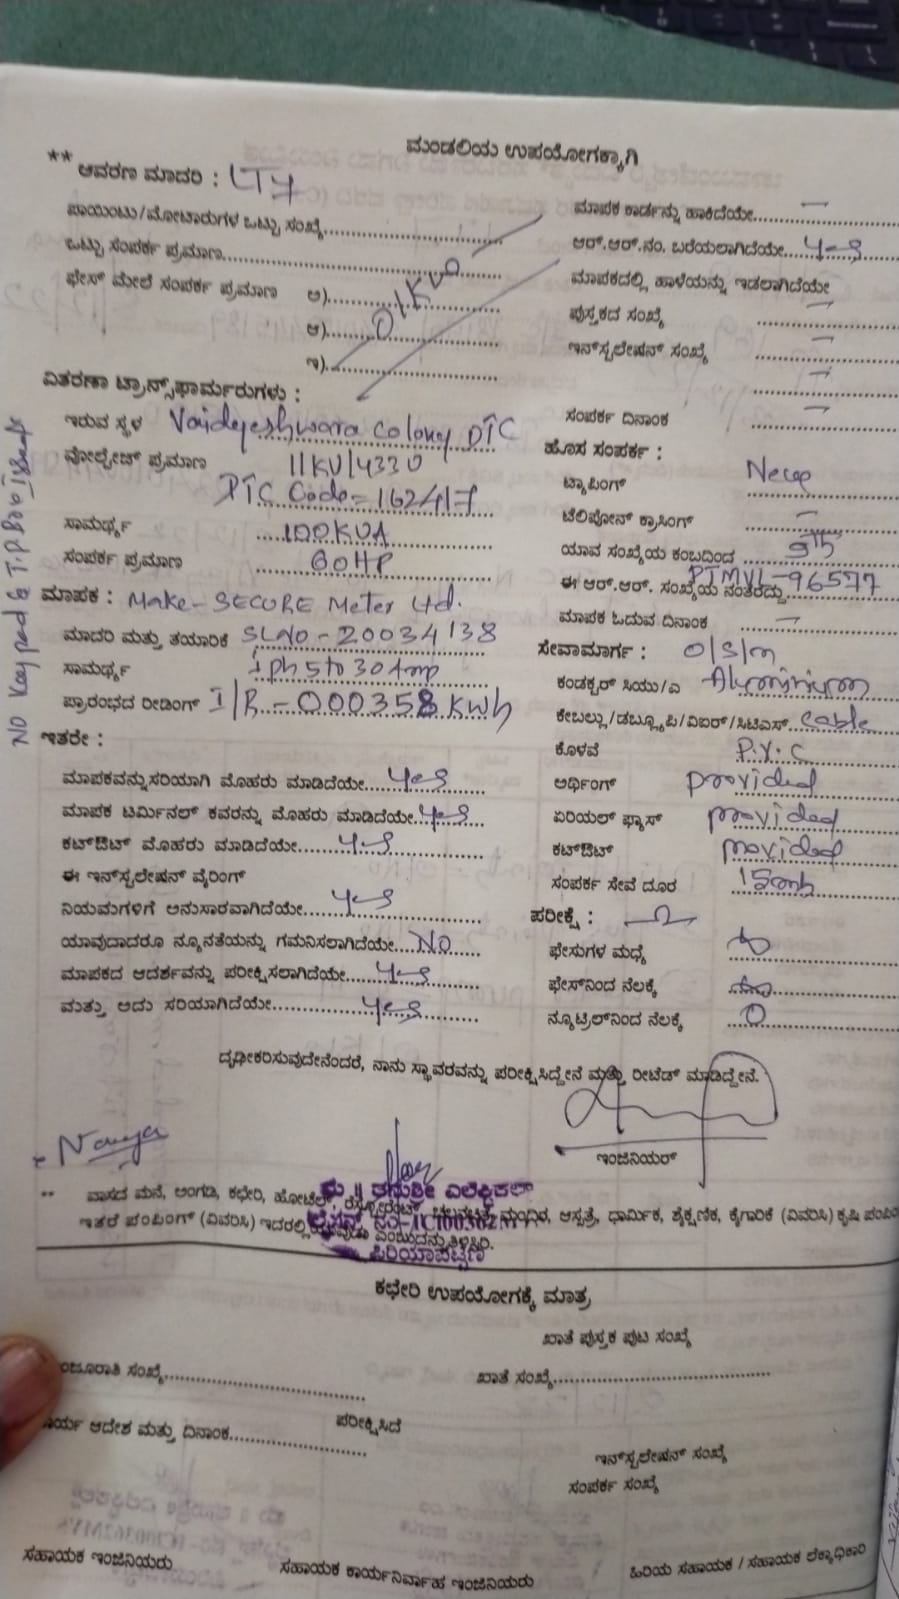 ಮಂಡಲಿಯ ಉಪಯೋಗಕ್ಕಾಗಿ
** ಆವರಣ ಮಾದರಿ : LT7
ಪಾಯಿಂಟು/ಮೋಟಾರುಗಳ ಒಟ್ಟು ಸಂಖ್ಯೆ
ಒಟ್ಟು ಸಂಪರ್ಕ ಪ್ರಮಾಣ
ಫೇಸ್ ಮೇಲೆ ಸಂಪರ್ಕ ಪ್ರಮಾಣ ಅ)
ಆ)
ಇ)
ವಿತರಣಾ ಟ್ರಾನ್ಸ್‌ಫಾರ್ಮರುಗಳು :
ಇರುವ ಸ್ಥಳ Vaidyeshwara Colony DTC
ವೋಲ್ಟೇಜ್ ಪ್ರಮಾಣ 11KV/433V
DTC Code = 162417
ಸಾಮರ್ಥ್ಯ 100KVA
ಸಂಪರ್ಕ ಪ್ರಮಾಣ 60HP
ಮಾಪಕ : Make - SECURE Meter Ltd.
ಮಾದರಿ ಮತ್ತು ತಯಾರಿಕೆ SLNo - 20034138
ಸಾಮರ್ಥ್ಯ 1ph 5 to 30 Amp
ಪ್ರಾರಂಭದ ರೀಡಿಂಗ್ I/R - 000358 KWh
ಇತರೇ :
ಮಾಪಕವನ್ನು ಸರಿಯಾಗಿ ಮೊಹರು ಮಾಡಿದೆಯೇ Yes
ಮಾಪಕ ಟರ್ಮಿನಲ್ ಕವರನ್ನು ಮೊಹರು ಮಾಡಿದೆಯೇ Yes
ಕಟ್‌ಔಟ್ ಮೊಹರು ಮಾಡಿದೆಯೇ Yes
ಈ ಇನ್‌ಸ್ಟಲೇಷನ್ ವೈರಿಂಗ್
ನಿಯಮಗಳಿಗೆ ಅನುಸಾರವಾಗಿದೆಯೇ Yes
ಯಾವುದಾದರೂ ನ್ಯೂನತೆಯನ್ನು ಗಮನಿಸಲಾಗಿದೆಯೇ No
ಮಾಪಕದ ಆದರ್ಶವನ್ನು ಪರೀಕ್ಷಿಸಲಾಗಿದೆಯೇ Yes
ಮತ್ತು ಅದು ಸರಿಯಾಗಿದೆಯೇ Yes
ಮಾಪಕ ಕಾರ್ಡನ್ನು ಹಾಕಿದೆಯೇ -
ಆರ್.ಆರ್.ನಂ. ಬರೆಯಲಾಗಿದೆಯೇ Yes
ಮಾಪಕದಲ್ಲಿ ಹಾಳೆಯನ್ನು ಇಡಲಾಗಿದೆಯೇ
ಪುಸ್ತಕದ ಸಂಖ್ಯೆ -
ಇನ್‌ಸ್ಟಲೇಷನ್ ಸಂಖ್ಯೆ -
-
ಸಂಪರ್ಕ ದಿನಾಂಕ -
ಹೊಸ ಸಂಪರ್ಕ :
ಟ್ಯಾಪಿಂಗ್ New
ಟೆಲಿಪೋನ್ ಕ್ರಾಸಿಂಗ್ -
ಯಾವ ಸಂಖ್ಯೆಯ ಕಂಬದಿಂದ
ಈ ಆರ್.ಆರ್. ಸಂಖ್ಯೆಯ ನಂತರದ್ದು PTMVL-96577
ಮಾಪಕ ಓದುವ ದಿನಾಂಕ -
ಸೇವಾಮಾರ್ಗ :
ಕಂಡಕ್ಟರ್ ಸಿಯು/ಎ Aluminium
ಕೇಬಲ್ಲು/ಡಬ್ಲ್ಯೂಪಿ/ವಿಐಆರ್/ಸಿಟಿಎಸ್ Cable
ಕೊಳವೆ P.V.C
ಅರ್ಥಿಂಗ್ provided
ಏರಿಯಲ್ ಫ್ಯೂಸ್ provided
ಕಟ್‌ಔಟ್ provided
ಸಂಪರ್ಕ ಸೇವೆ ದೂರ
ಪರೀಕ್ಷೆ :
ಫೇಸುಗಳ ಮಧ್ಯೆ
ಫೇಸ್‌ನಿಂದ ನೆಲಕ್ಕೆ
ನ್ಯೂಟ್ರಲ್‌ನಿಂದ ನೆಲಕ್ಕೆ 0
ದೃಢೀಕರಿಸುವುದೇನೆಂದರೆ, ನಾನು ಸ್ಥಾವರವನ್ನು ಪರೀಕ್ಷಿಸಿದ್ದೇನೆ ಮತ್ತು ರೀಟೆಡ್ ಮಾಡಿದ್ದೇನೆ.
ಇಂಜಿನಿಯರ್
** ವಾಸದ ಮನೆ, ಅಂಗಡಿ, ಕಛೇರಿ, ಹೋಟೆಲ್, ಮಂದಿರ, ಆಸ್ಪತ್ರೆ, ಧಾರ್ಮಿಕ, ಶೈಕ್ಷಣಿಕ, ಕೈಗಾರಿಕೆ (ವಿವರಿಸಿ) ಕೃಷಿ
ಇತರೆ ಪಂಪಿಂಗ್ (ವಿವರಿಸಿ) ಇದರಲ್ಲಿ ಎಂಬುದನ್ನು ತಿಳಿಸಿರಿ.
ಪಿರಿಯಾಪಟ್ಟಣ
ಕಛೇರಿ ಉಪಯೋಗಕ್ಕೆ ಮಾತ್ರ
ಖಾತೆ ಪುಸ್ತಕ ಪುಟ ಸಂಖ್ಯೆ
ಸಂಖ್ಯೆ
ಖಾತೆ ಸಂಖ್ಯೆ
ಪರೀಕ್ಷಿಸಿದೆ
ಆದೇಶ ಮತ್ತು ದಿನಾಂಕ
ಇನ್‌ಸ್ಟಲೇಷನ್ ಸಂಖ್ಯೆ
ಸಂಪರ್ಕ ಸಂಖ್ಯೆ
ಸಹಾಯಕ ಇಂಜಿನಿಯರು
ಸಹಾಯಕ ಕಾರ್ಯನಿರ್ವಾಹ ಇಂಜಿನಿಯರು
ಹಿರಿಯ ಸಹಾಯಕ / ಸಹಾಯಕ ಲೆಕ್ಕಾಧಿಕಾರಿ